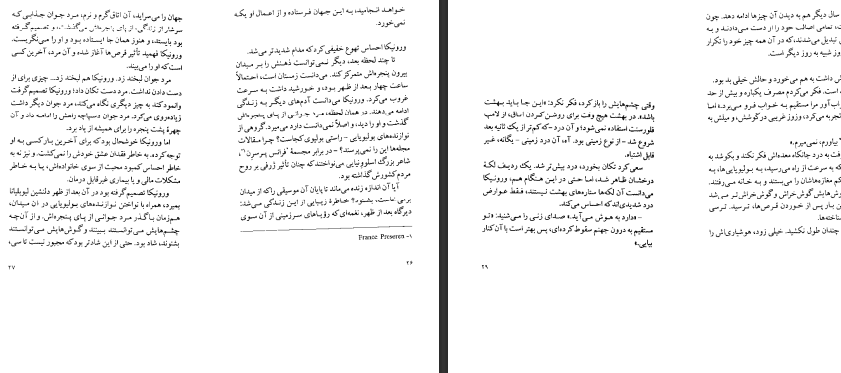 خواهد انجامید، به این جهان فرستاده و از اعمال او یکه
نمی‌خورد.
ورونیکا احساس تهوع خفیفی کرد که مدام شدیدتر می‌شد.
تا چند لحظه بعد، دیگر نمی‌توانست ذهنش را بر میدان
بیرون پنجره‌اش متمرکز کند. می‌دانست زمستان است، احتمالاً
ساعت چهار بعد از ظهر بود، و خورشید داشت به سرعت
غروب می‌کرد. ورونیکا می‌دانست آدم‌های دیگر به زندگی
ادامه می‌دهند. در همان لحظه، مرد جوانی از پای پنجره‌اش
گذشت و او را دید، و اصلاً نمی‌دانست دارد می‌میرد. گروهی از
نوازنده‌های بولیویایی - راستی بولیوی کجاست؟ چرا مقالات
مجله‌ها این را نمی‌پرسند؟ - در برابر مجسمهٔ "فرانس پرسرن"۱،
شاعر بزرگ اسلوونیایی می‌نواختند که چنان تأثیر ژرفی بر روح
مردم کشورش گذاشته بود.
آیا آن اندازه زنده می‌ماند تا پایان آن موسیقی را که از میدان
برمی‌خاست، بشنود؟ خاطرهٔ زیبایی از این زندگی می‌شد:
دیرگاه بعد از ظهر، نغمه‌ای که رؤیاهای سرزمینی از آن سوی
۱- France Preseren
۲۶
جهان را می‌سراید، آن اتاق گرم و نرم، مرد جوان جذابی که
سرشار از زندگی، از پای پنجره‌اش می‌گذشت، و تصمیم گرفته
بود بایستد، و هنوز همان جا ایستاده بود و او را می‌نگریست.
ورونیکا فهمید تأثیر قرص‌ها آغاز شده، و آن مرد، آخرین کسی
است که او را می‌بیند.
مرد جوان لبخند زد. ورونیکا هم لبخند زد... چیزی برای از
دست دادن نداشت. مرد دست تکان داد؛ ورونیکا تصمیم گرفت
وانمود کند به چیز دیگری نگاه می‌کند، مرد جوان دیگر داشت
زیاده‌روی می‌کرد. مرد جوان دستپاچه راهش را ادامه داد و آن
چهرهٔ پشت پنجره را برای همیشه از یاد برد.
اما ورونیکا خوشحال بود که برای آخرین بار کسی به او
توجه کرده. به خاطر فقدان عشق خودش را نمی‌کشت. و نیز نه به
خاطر احساس کمبود محبت از سوی خانواده‌اش، یا به خاطر
مشکلات مالی و یا بیماری غیرقابل درمان.
ورونیکا تصمیم گرفته بود در آن بعد از ظهر دلنشین لیوبلیانا
بمیرد، همراه با نواختن نوازنده‌های بولیویایی در آن میدان،
هم‌زمان با گذر مرد جوانی از پای پنجره‌اش، و از آن‌چه
چشم‌هایش می‌توانستند ببینند و گوش‌هایش می‌توانستند
بشنوند، شاد بود. حتی از این شادتر بود که مجبور نیست تا سی،
۲۷
سال دیگر هم به دیدن آن چیزها ادامه دهد. چون
تمامی اصالت خود را از دست می‌دادند و به
تبدیل می‌شدند، که در آن همه چیز خود را تکرار
روز شبیه به روز دیگر است.
داشت به هم می‌خورد و حالش خیلی بد بود.
است. فکر می‌کردم مصرف یکباره و بیش از حد
خواب‌آور مرا مستقیم به خواب فرو می‌برد.» اما
تجربه می‌کرد، وزوز غریبی در گوشش، و میلش به
بیاورم، نمی‌میرم.»
گرفت به درد جانکاه معده‌اش فکر نکند و بکوشد به
که به سرعت از راه می‌رسید، به بولیویایی‌ها، به
مغازه‌هاشان را می‌بستند و به خانه می‌رفتند.
گوش‌هایش گوش‌خراش و گوش‌خراش‌تر می‌شد
بار پس از خوردن قرص‌ها، ترسید. ترسی
ناشناخته‌ها.
چندان طول نکشید. خیلی زود، هوشیاری‌اش را
وقتی چشم‌هایش را باز کرد، فکر نکرد: «این جا باید بهشت
باشد.» در بهشت هیچ وقت برای روشن کردن اتاق، از لامپ
فلورسنت استفاده نمی‌شود؛ و آن درد - که کم‌تر از یک ثانیه بعد
شروع شد - از نوع زمینی بود. آه، آن درد زمینی - یگانه، غیر
قابل اشتباه.
سعی کرد تکان بخورد، درد بیش‌تر شد. یک ردیف لکهٔ
درخشان ظاهر شد، اما حتی در این هنگام هم، ورونیکا
می‌دانست آن لکه‌ها ستاره‌های بهشت نیستند، فقط عوارض
درد شدیدی‌اند که احساس می‌کند.
- «دارد به هوش می‌آید.» صدای زنی را می‌شنید: «تو
مستقیم به درون جهنم سقوط کرده‌ای، پس بهتر است با آن کنار
بیایی.»
۲۹